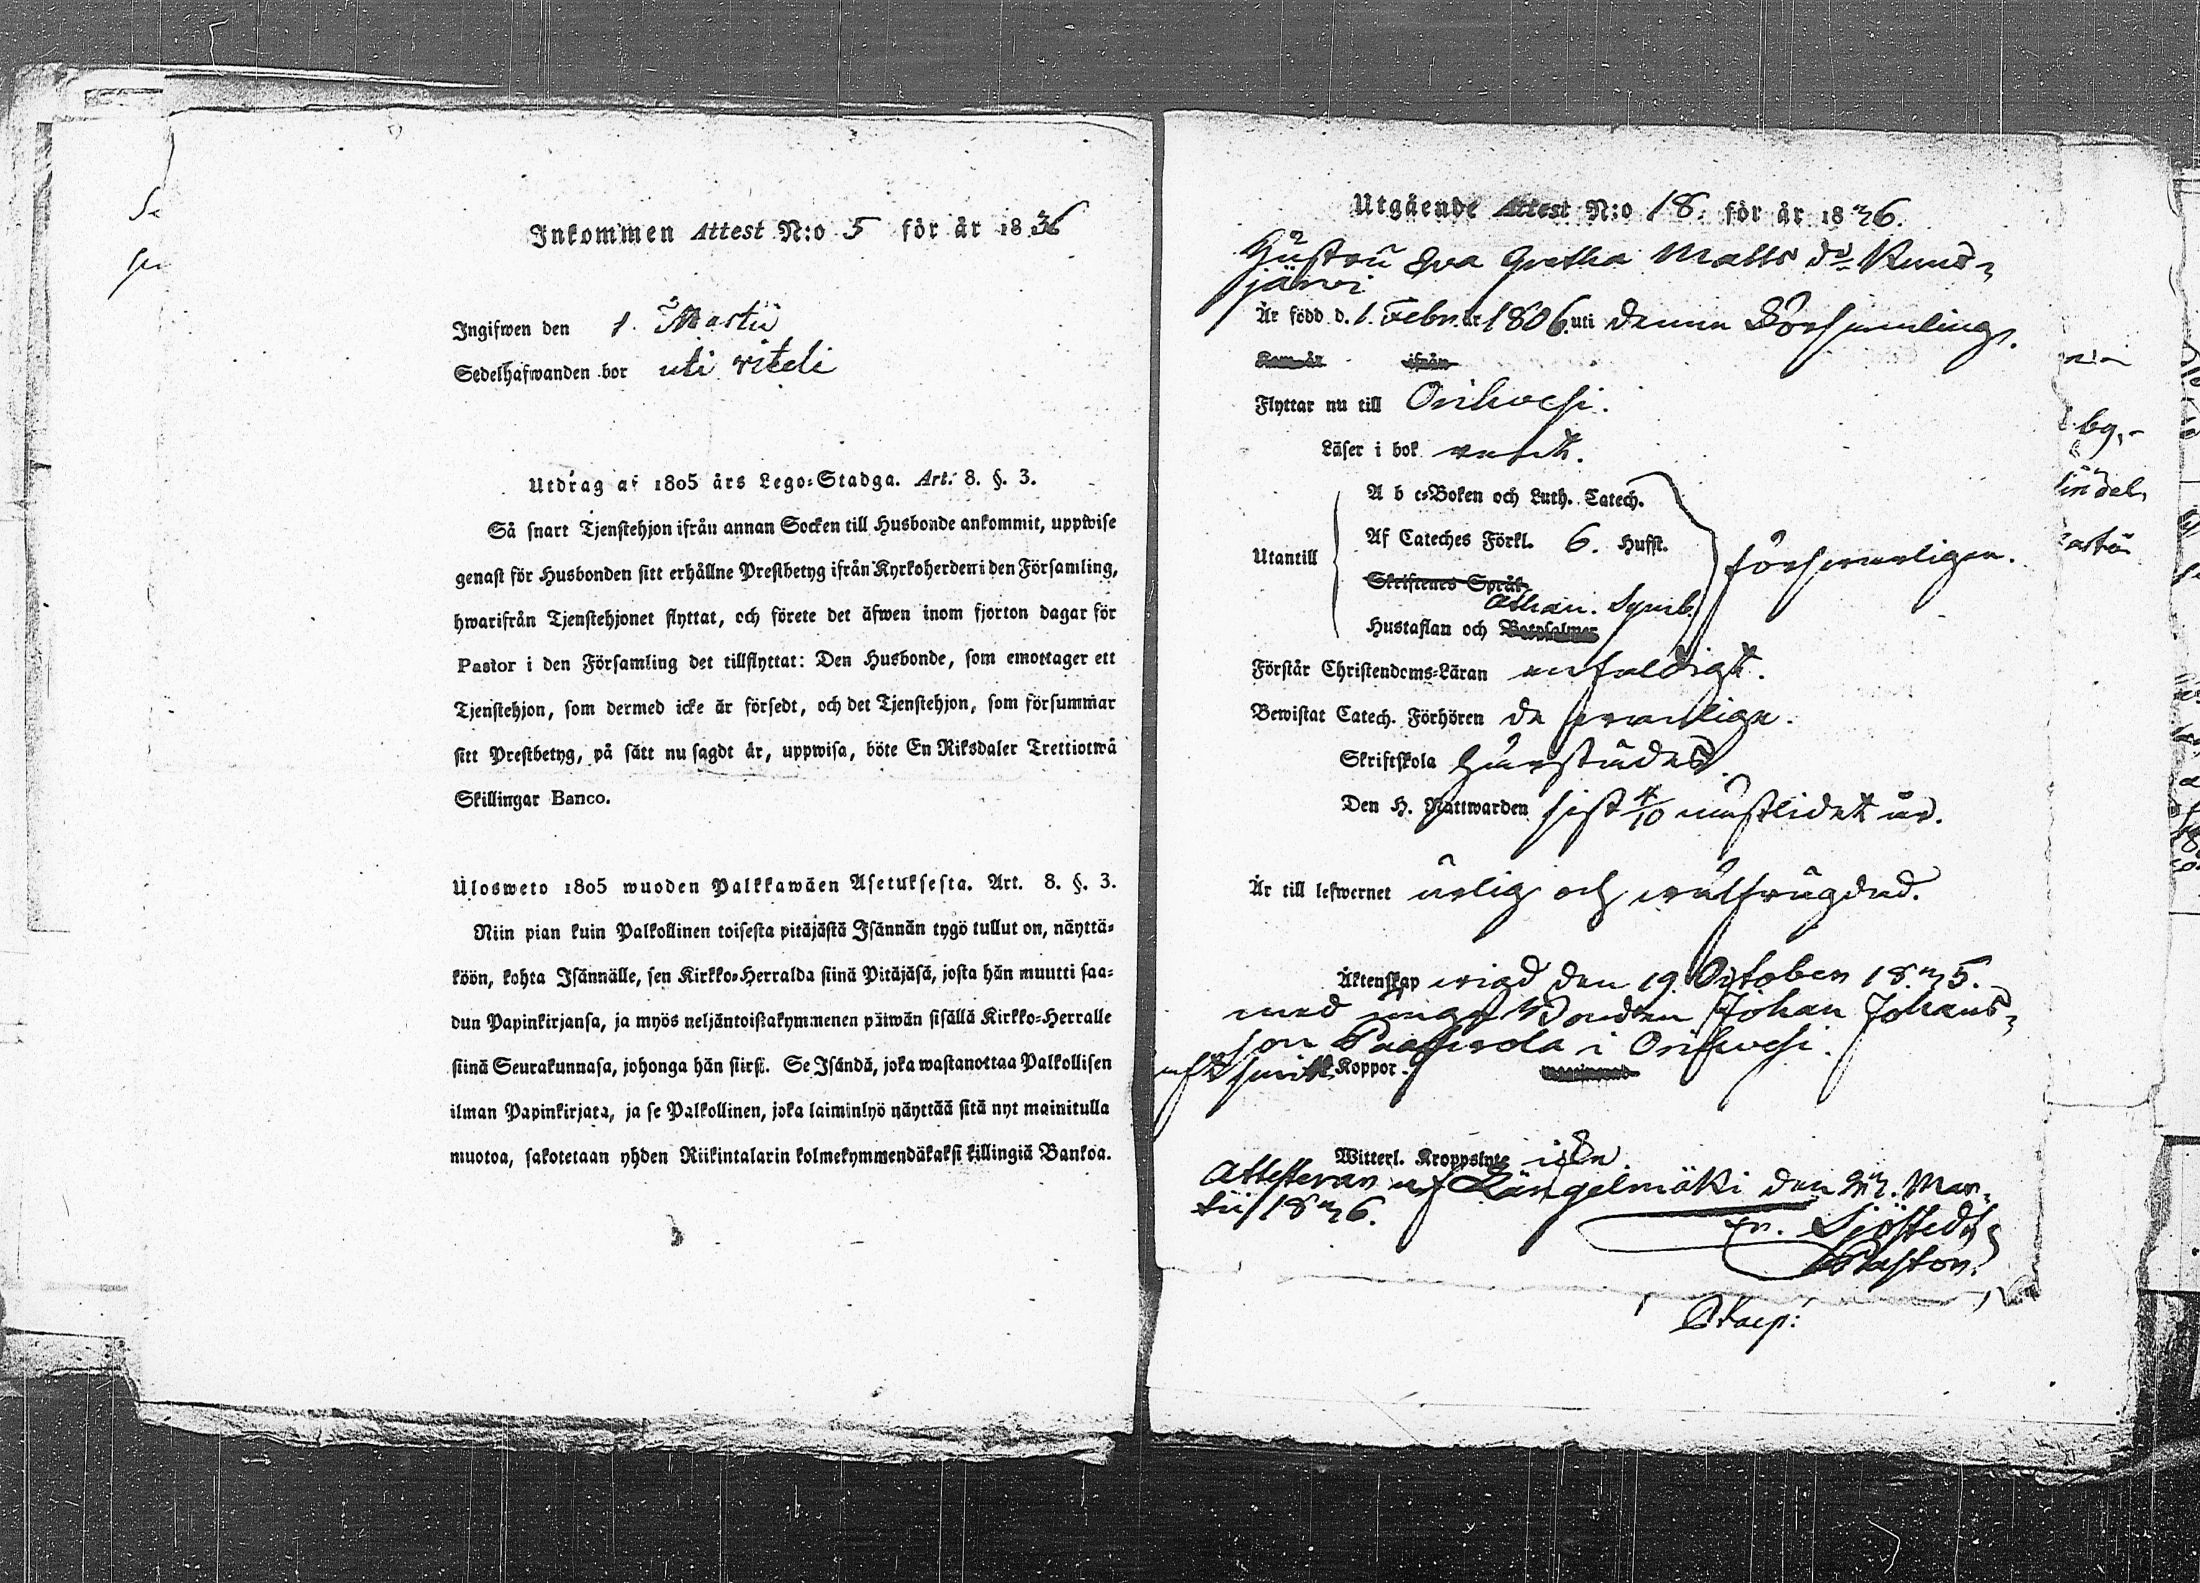 Inkommen Attest N:o 5 för år 1836
Ingifwen den 1. Martii
Sedelhafwanden bor uti
Utdrag af 1805 års Lego-Stadga. Art. 8. §. 3.
Så snart Tjenstehjon ifrån annan Socken till Husbonde ankommit, uppwise
genast för Husbonden sitt erhållne Prestbetyg ifrån Kyrkoherden i den Församling,
hwarifrån Tjenstehjonet flyttat, och förete det äfwen inom fjorton dagar för
Pastor i den Församling det tillflyttat: Den Husbonde, som emottager ett
Tjenstehjon, som dermed icke är försedt, och det Tjenstehjon, som försummar
sitt Prestbetyg, på sätt nu sagdt är, uppwisa, böte En Riksdaler Trettiotwå
Skillingar Banco.
Ulosweto 1805 wuoden Palkkawäen Asetuksesta. Art. 8. §. 3.
Niin pian kuin Palkollinen toisesta pitäjästä Isännän tygö tullut on, näyttä-
köön, kohta Isännälle, sen Kirkko-Herralda siinä Pitäjäsä, josta hän muutti saa-
dun Papinkirjansa, ja myös neljäntoistakymmenen päiwän sisällä Kirkko-Herralle
siinä Seurakunnasa, johonga hän siirsi. Se Isändä, joka wastanottaa Palkollisen
ilman Papinkirjata, ja se Palkollinen, joka laiminlyö näyttää sitä nyt mainitulla
muotoa, sakotetaan yhden Riikintalarin kolmekymmendäkaksi killingiä Bankoa.
Utgående Attest N:o 18. för år 1836.
Hustru Eva Gretha Matts dr Kuus-
järvi
Är född d. 1. Febr. år 1806. uti denna Församling.
Kom år ifrån
Flyttar nu till Orihvesi.
Läser i bok
A b c-Boken och Luth. Catech.
Utantill Af Cateches Förkl. 6. Hufst. försvarligen.
Skriftenes Språk
Athan. Symb.
Hustaflan och Botpsalmer
Förstår Christendoms-Läran enfaldigt.
Bewistat Catech. Förhören de vanliga.
Skriftskola
Den H. Nattwarden sist 4/10 nästlidet år.
Är till lefwernet ärlig och wälfrägdad.
Äktenskap wigd den 19. October 1835.
med unga Bonden Johan Johans-
son i Orihvesi.
Koppor.
Witterl. Kroppslyte
Attesterar af Längelmäki den Mar-
tii 1836.
Sjöstedt
Pastor.